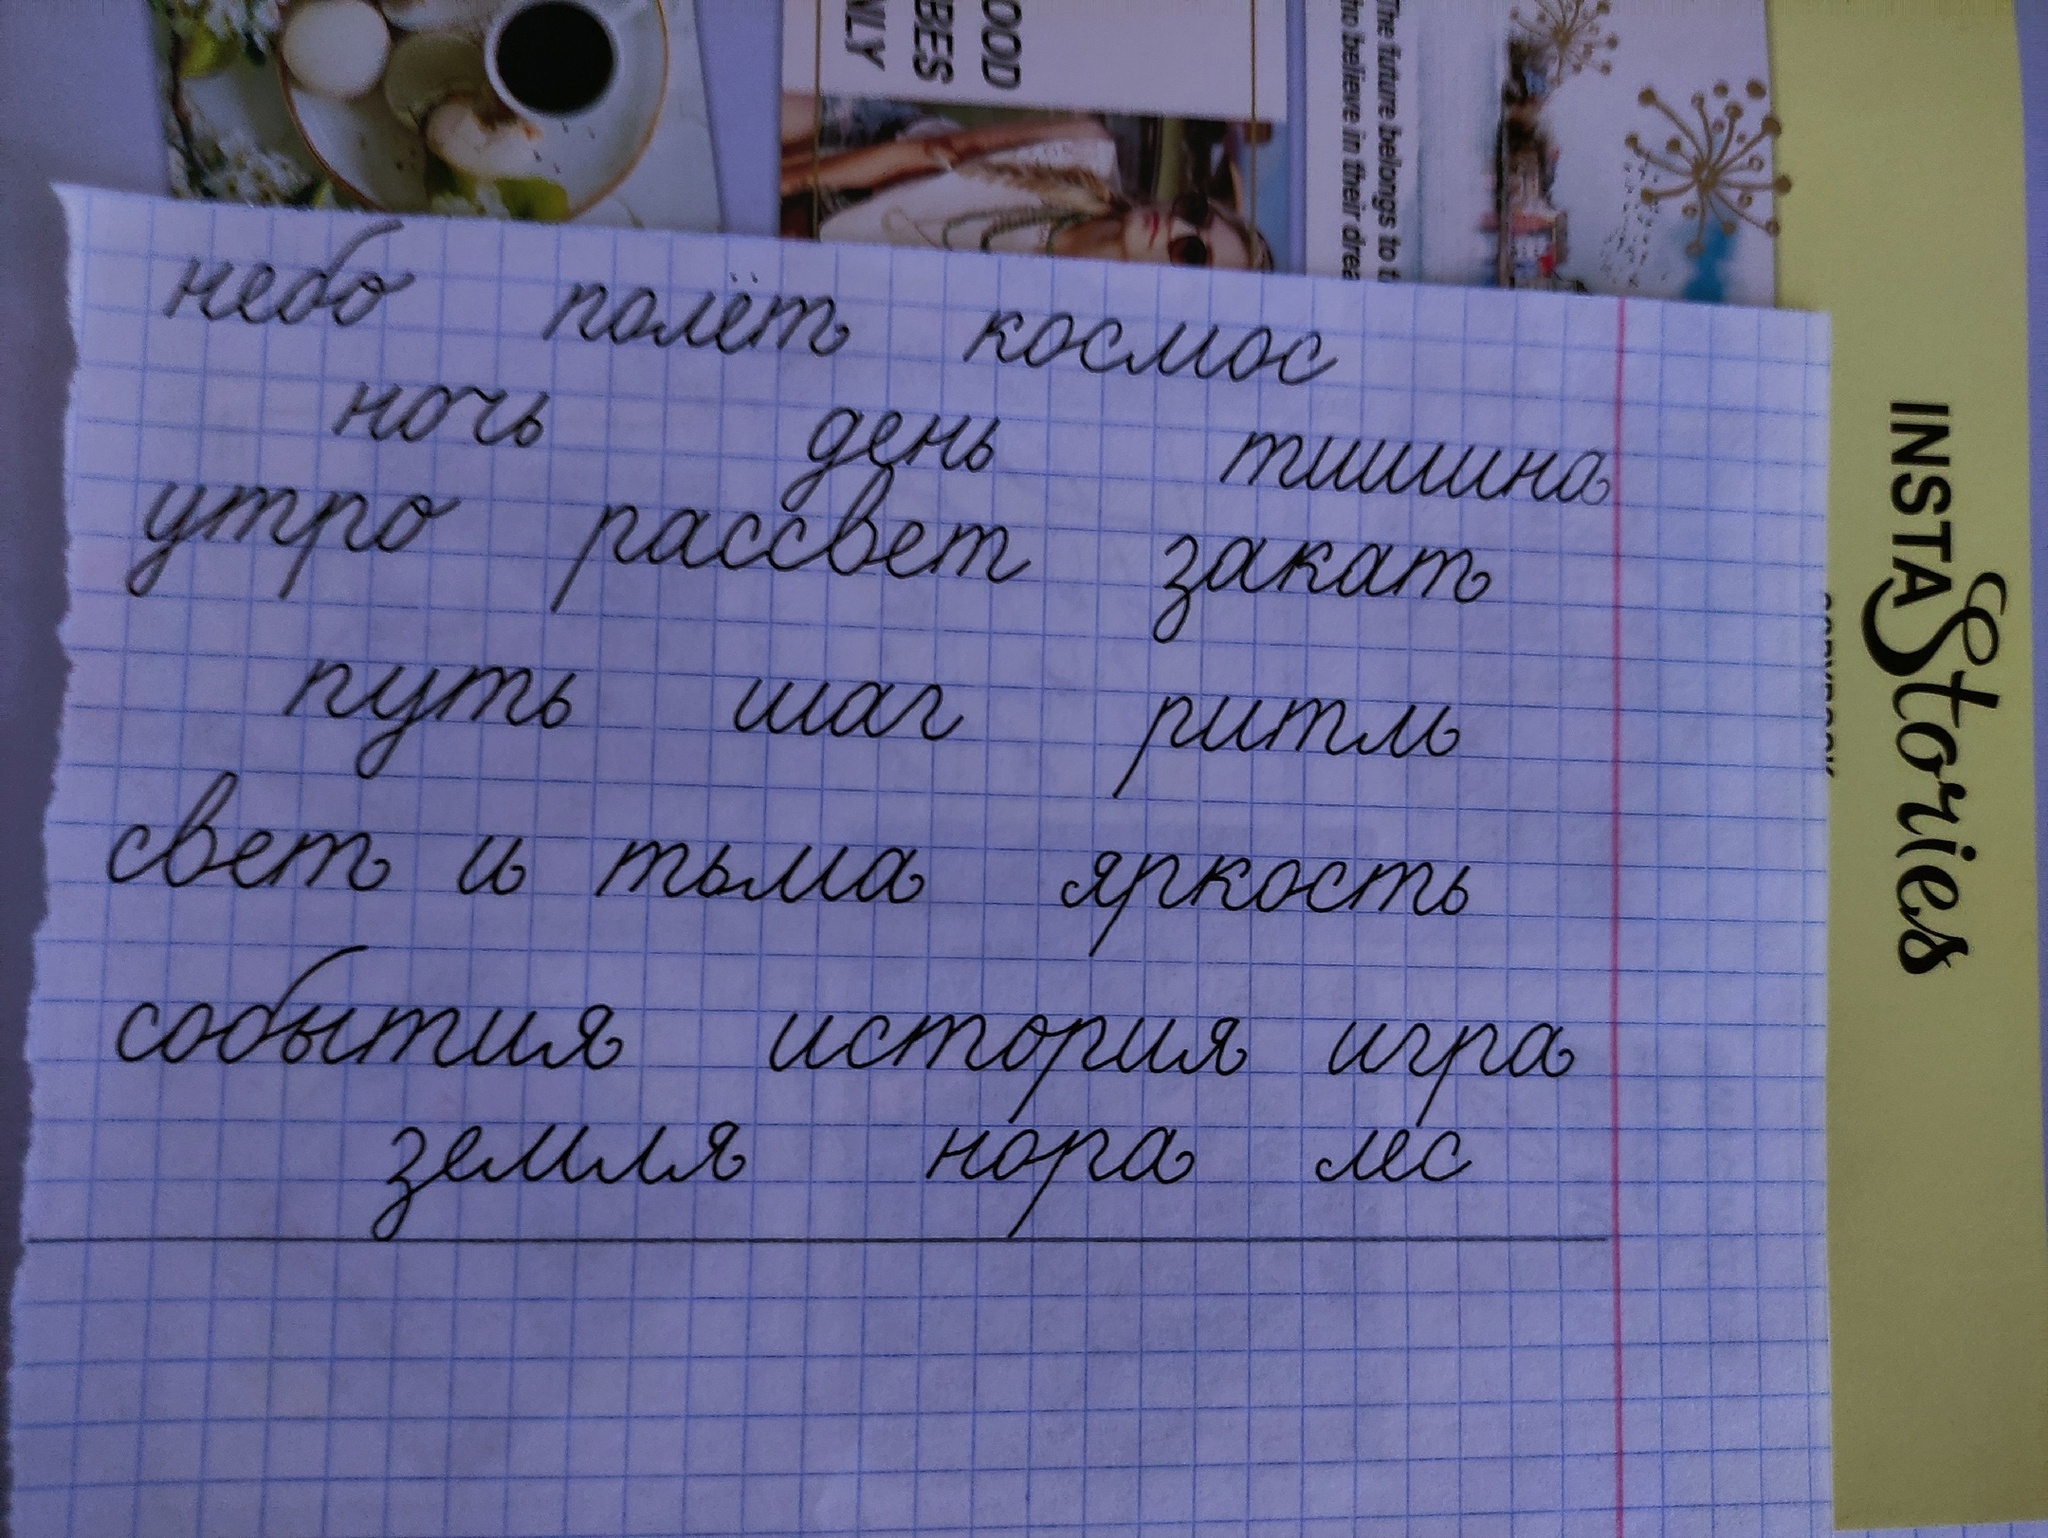 OOD
BES
NLY
The future belongs to t
ho believe in their drea
небо полёт космос
ночь день тишина
утро рассвет закат
путь шаг ритм
свет и тьма яркость
события история игра
земля нора лес
INSTA Stories